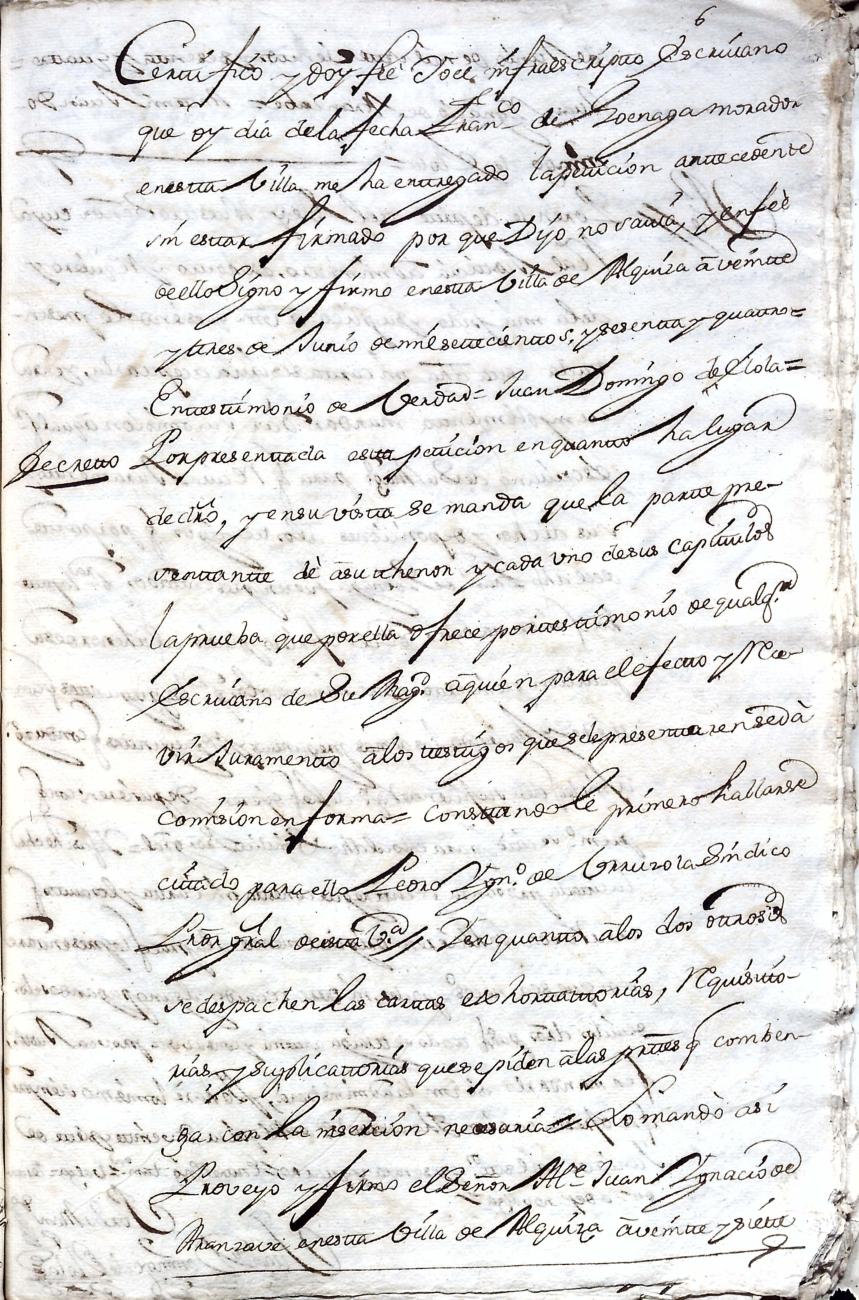 6
Certifico y doy fee Yo el infraescripto Escriuano
que oy dia de la fecha Fran.co de Goenaga morador
en esta Villa me ha entregado la peticion antecedente
sin estar firmado por que Dijo no sauia, y en fee
de ello Signo y firmo en esta Villa de Alquiza a veinte
y tres de Junio de mil setecientos, y sesenta y quatro=
En testimonio de Verdad= Juan Domingo de Elola=
Decretto Por presentada esta peticion en quanto ha lugar
de dro, y en su vista se manda que la parte pre-
sentante dè a su thenor y cada uno de sus capitulos
la prueba que por ella ofrece por testimonio de qualq.r
Escriuano de Su Mag.d a quien para el efecto y Rece-
vir Juramento a los testigos que se le presentaren se dà
Comision en forma= Constandole primero hallarse
citado para ello Pedro Ygn.o de Urruzola Sindico
Pror gral de esta V.a // Y en quanto a los dos otrosies
se despachen las cartas exhortattorias, Requisito-
rias y suplicattorias que se piden a las prttes q comben-
ga con la insercion necesaria= Lo mandò asi
Proveyò y firmo el Señor Alc.e Juan Ygnacio de
en esta Villa de Alquiza a veinte y siette